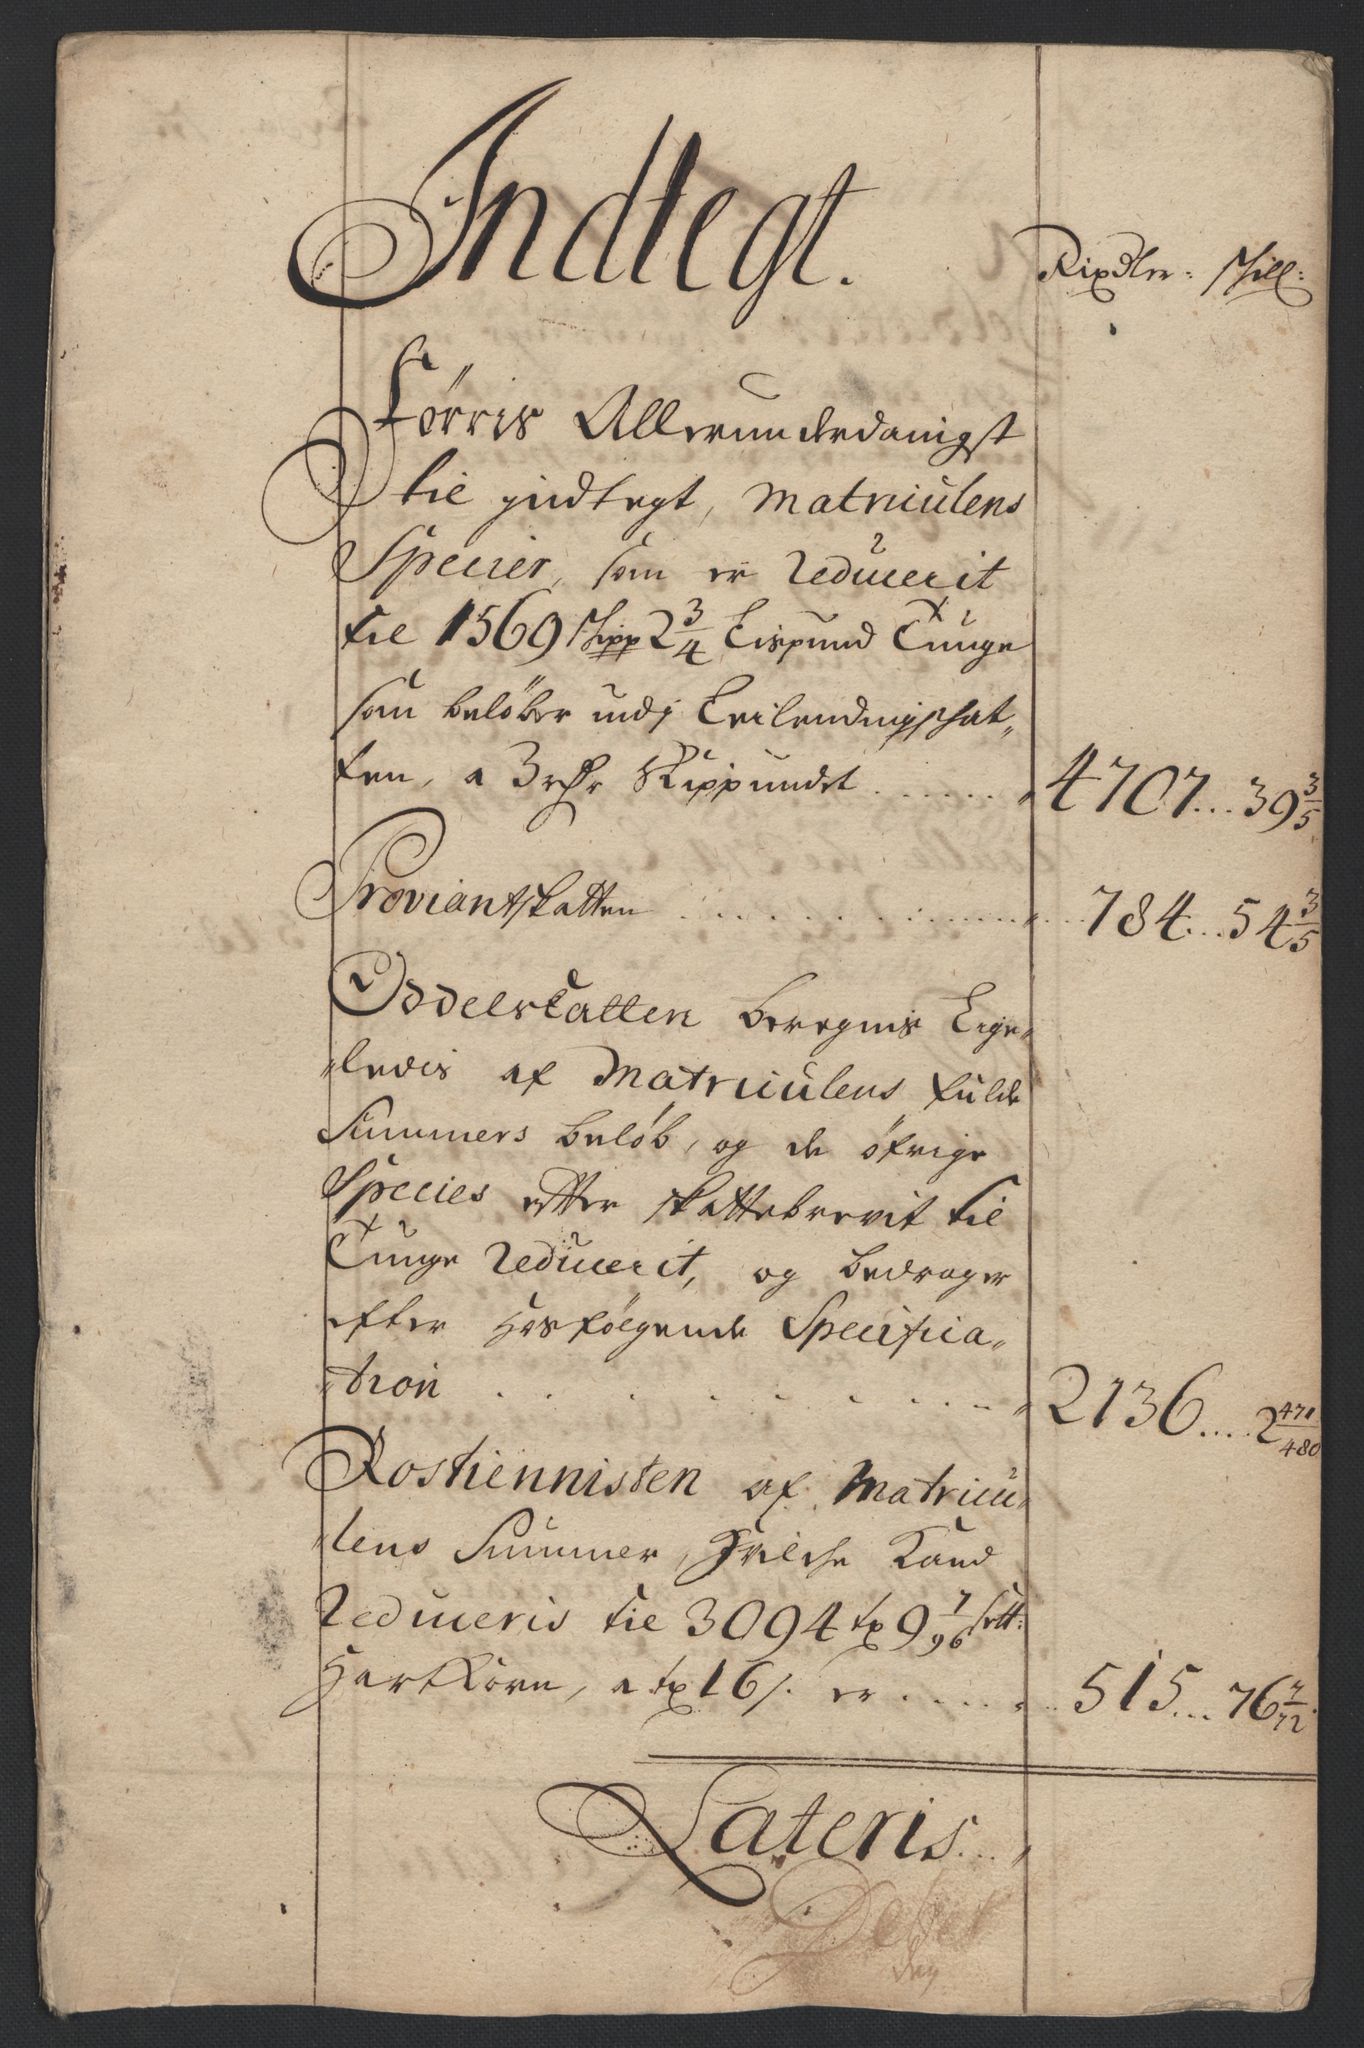 Indtegt.
Rixdler: Skill:
Førris Allerunderdanigst
til indtegt, Matriculens
Specier, som er Reducerit
til 1569 Skipp 2 3/4 Lispund Tunge
som beløber udj Leilendingsskat-
ten, a 3 rdr Skippundet ...... 4707... 39 3/5
Proviantskatten ...... 784... 54 3/5
Oddelskatten beregnis Lige-
-ledis af Matriculens fulde
Summers beløb, og de øfrige
Species efter skattebrevit til
Tunge Reducerit, og bedrager
efter hosfølgende Specifica-
-tion ...... 2136.... 2 471/480
Rostiennisten af Matricu-
-lens Summer, hvilche Land
Reduceris til 3094 tø 9 7/96 sett:
Hartkorn, a tø 16 s. er ...... 515... 76 7/72
Lateris...